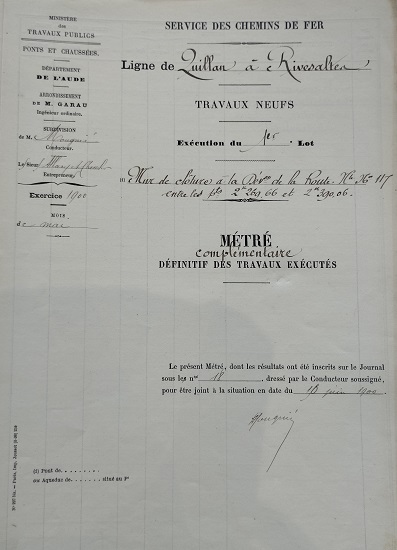 MINISTÈRE
des
TRAVAUX PUBLICS
PONTS ET CHAUSSÉES.
DÉPARTEMENT
DE L'AUDE
ARRONDISSEMENT
DE M. GARAU
Ingénieur ordinaire.
SUBDIVISION
de M.
Conducteur.
Le Sieur
Entrepreneur.
Exercice 1900
MOIS
de mai
SERVICE DES CHEMINS DE FER
Ligne de Quillan à Rivesaltes
TRAVAUX NEUFS
Exécution du 1er Lot
Mur de clôture à la Dév.on de la Route N.le N° 117
entre les 2 269,66 et 2 390,06.
MÉTRÉ
complémentaire
DÉFINITIF DES TRAVAUX EXÉCUTÉS
Le présent Métré, dont les résultats ont été inscrits sur le Journal
sous les nos 18, dressé par le Conducteur soussigné,
pour être joint à la situation en date du juin 1900
(1) Pont de . . . . . . . .
ou Aqueduc de . . . . . . . situé au P